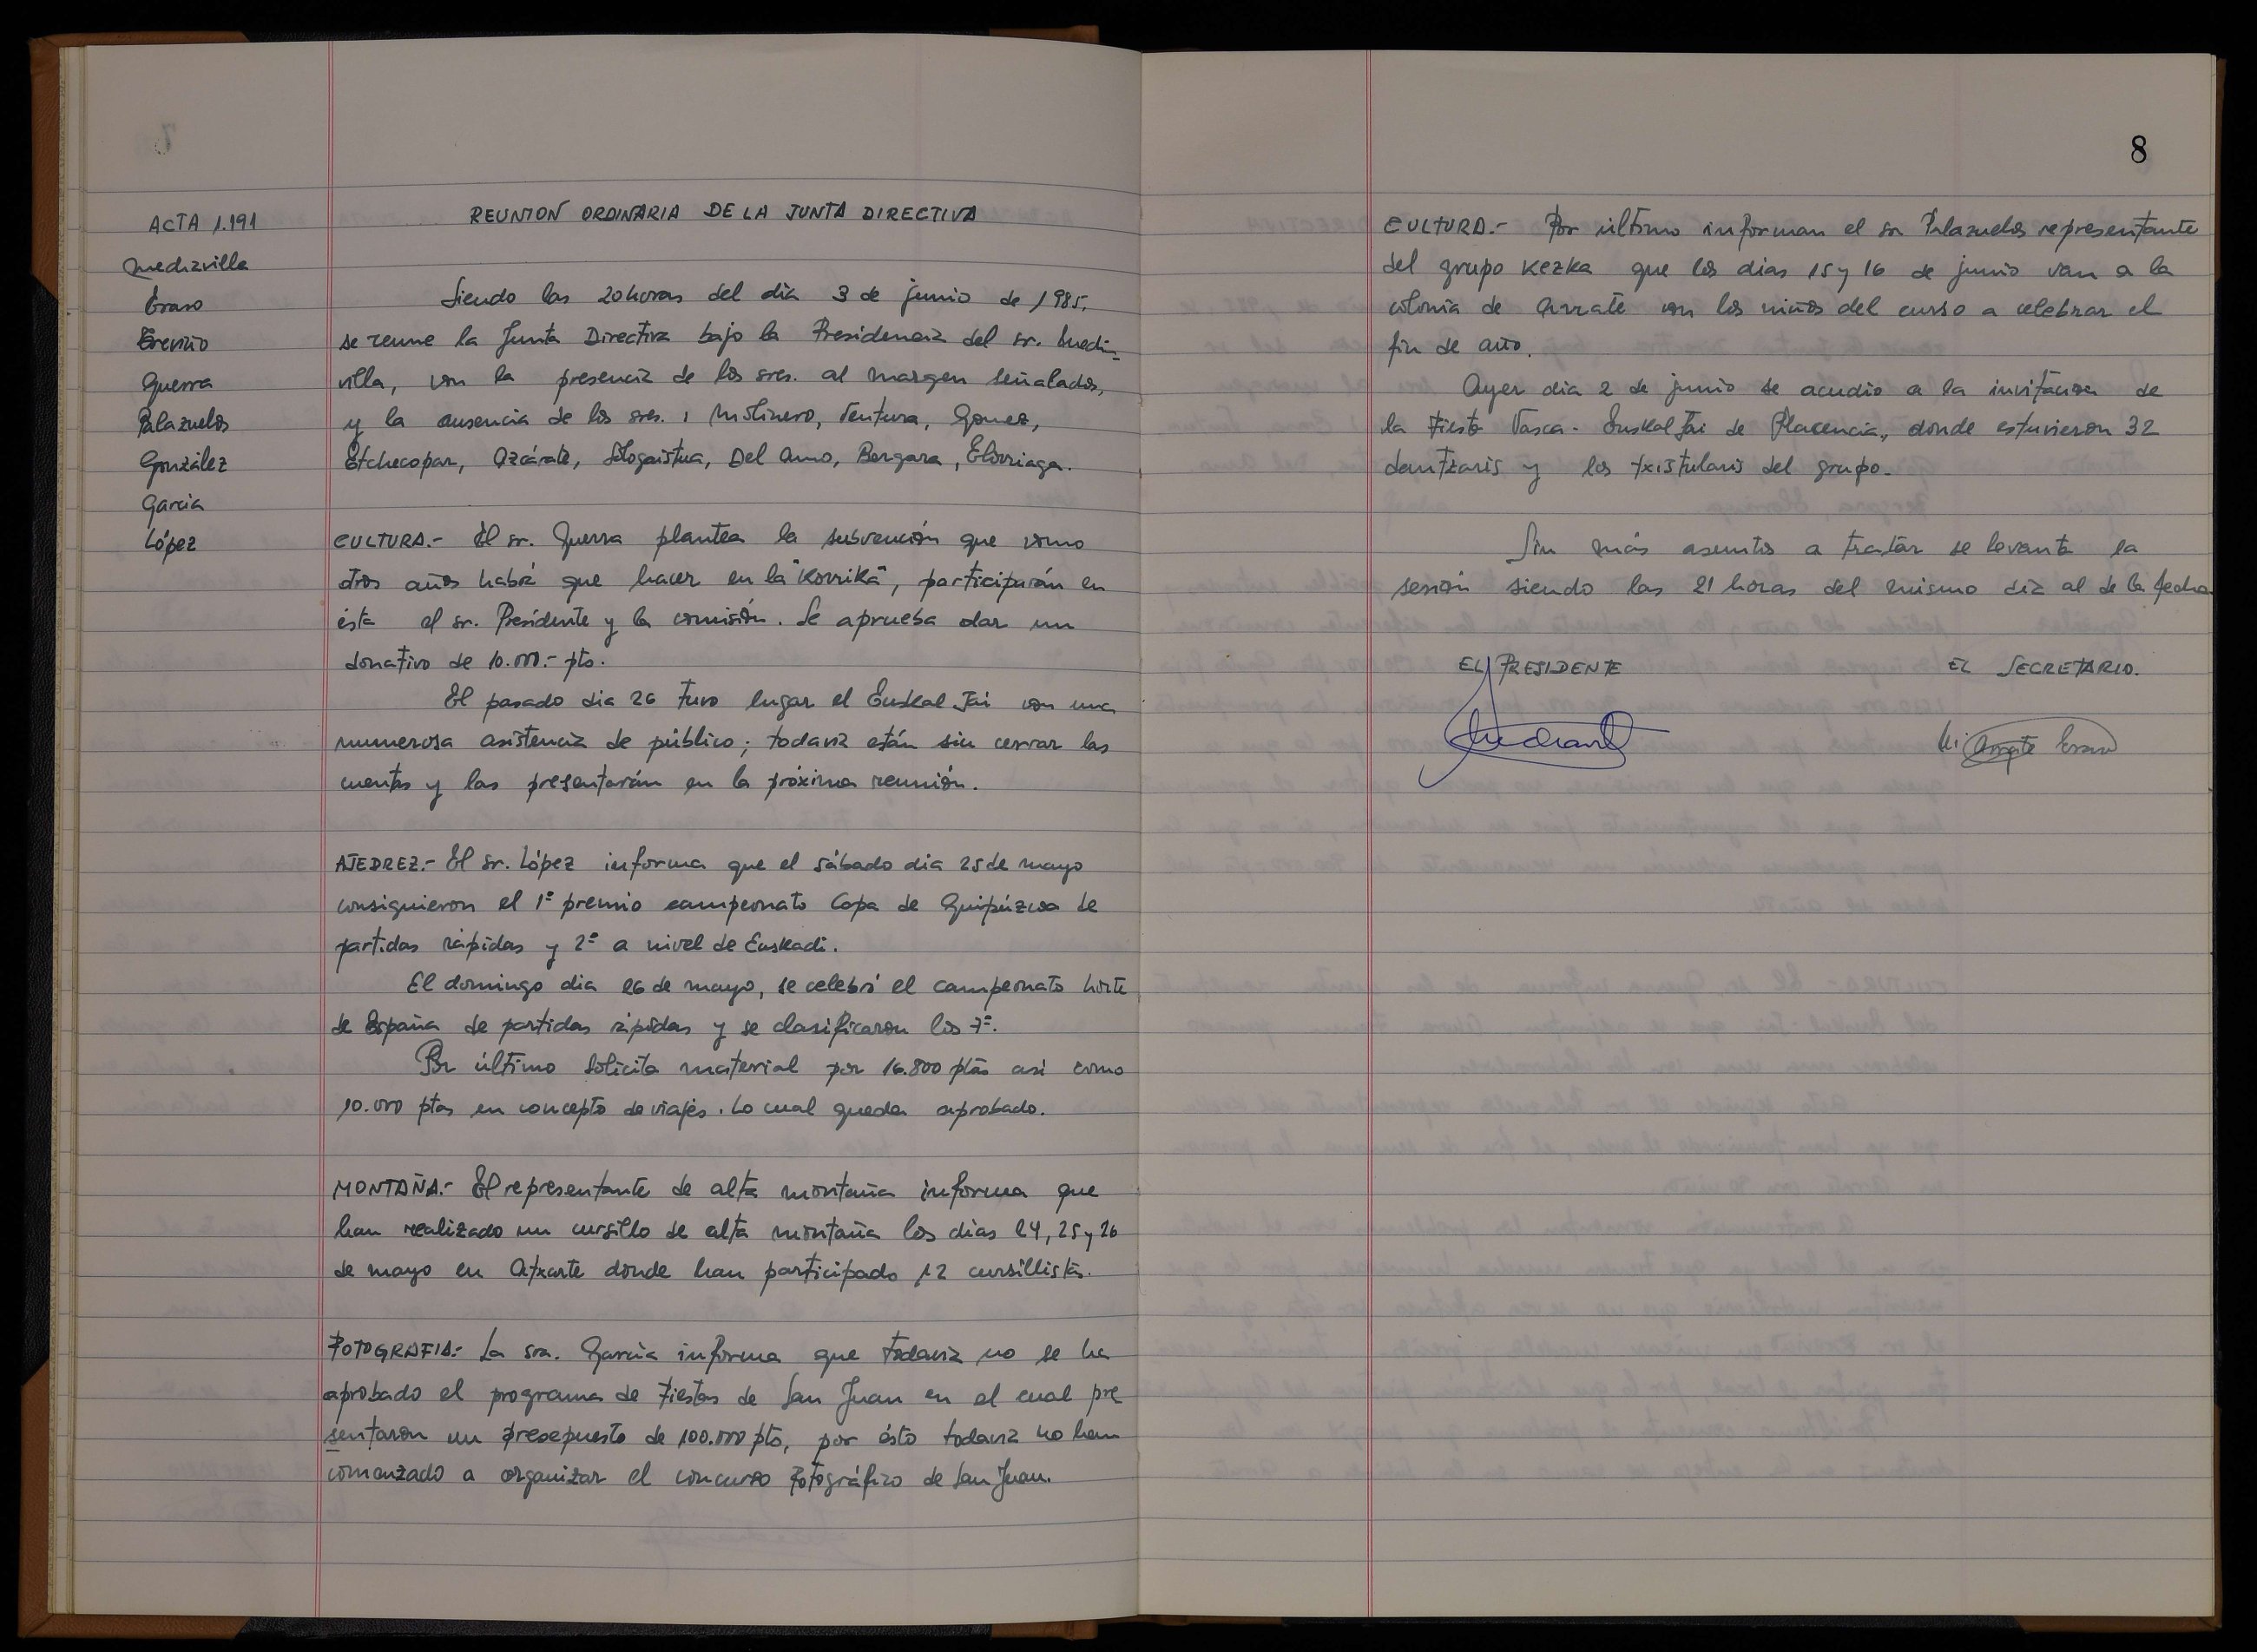 ACTA 1.191
Mediavilla
Eraso
Treviño
Guerra
Palazuelos
González
Garcia
López
REUNION ORDINARIA DE LA JUNTA DIRECTIVA
Siendo las 20 horas del dia 3 de junio de 1985,
se reune la Junta Directiva bajo la Presidencia del sr. Media-
villa, con la presencia de los sres. al margen señalados,
y la ausencia de los sres. : Molinero, Ventura, Gomez,
Etchecopar, Azcárate, Sologaistua, Del Amo, Bergara, Elorriaga.
CULTURA.- El sr. Guerra plantea la subvención que como
otros años habrá que hacer en la "Korrika", participarán en
ésta el sr. Presidente y la comisión. Se aprueba dar un
donativo de 10.000.- pts.
El pasado dia 26 tuvo lugar el Euskal Jai con una
numerosa asistencia de público; todavia están sin cerrar las
cuentas y las presentarán en la próxima reunión.
AJEDREZ.- El sr. López informa que el sábado dia 25 de mayo
consiguieron el 1º premio campeonato Copa de Guipúzcoa de
partidas rápidas y 2º a nivel de Euskadi.
El domingo dia 26 de mayo, se celebró el campeonato Norte
de España de partidas rápidas y se clasificaron los 7º.
Por último solicita material por 16.800 ptas asi como
10.000 ptas en concepto de viajes. Lo cual queda aprobado.
MONTAÑA.- El representante de alta montaña informa que
han realizado un cursillo de alta montaña los dias 24, 25 y 26
de mayo en Atxarte donde han participado 12 cursillistas.
FOTOGRAFIA.- La sra. Garcia informa que todavia no se ha
aprobado el programa de Fiestas de San Juan en el cual pre
sentaron un presepuesto de 100.000 pts, por ésto todavia no han
comenzado a organizar el concurso Fotográfico de San Juan.
8
CULTURA.- Por último informan el sr Palazuelos representante
del grupo Kezka que los dias 15 y 16 de junio van a la
colonia de Arrate con los niños del curso a celebrar el
fin de año.
Ayer dia 2 de junio se acudio a la invitacion de
la Fiesta Vasca - Euskal Jai de Placencia, donde estuvieron 32
dantzaris y los txistularis del grupo.
Sin más asuntos a tratar se levanta la
sesión siendo las 21 horas del mismo dia al de la fecha
EL PRESIDENTE
EL SECRETARIO.